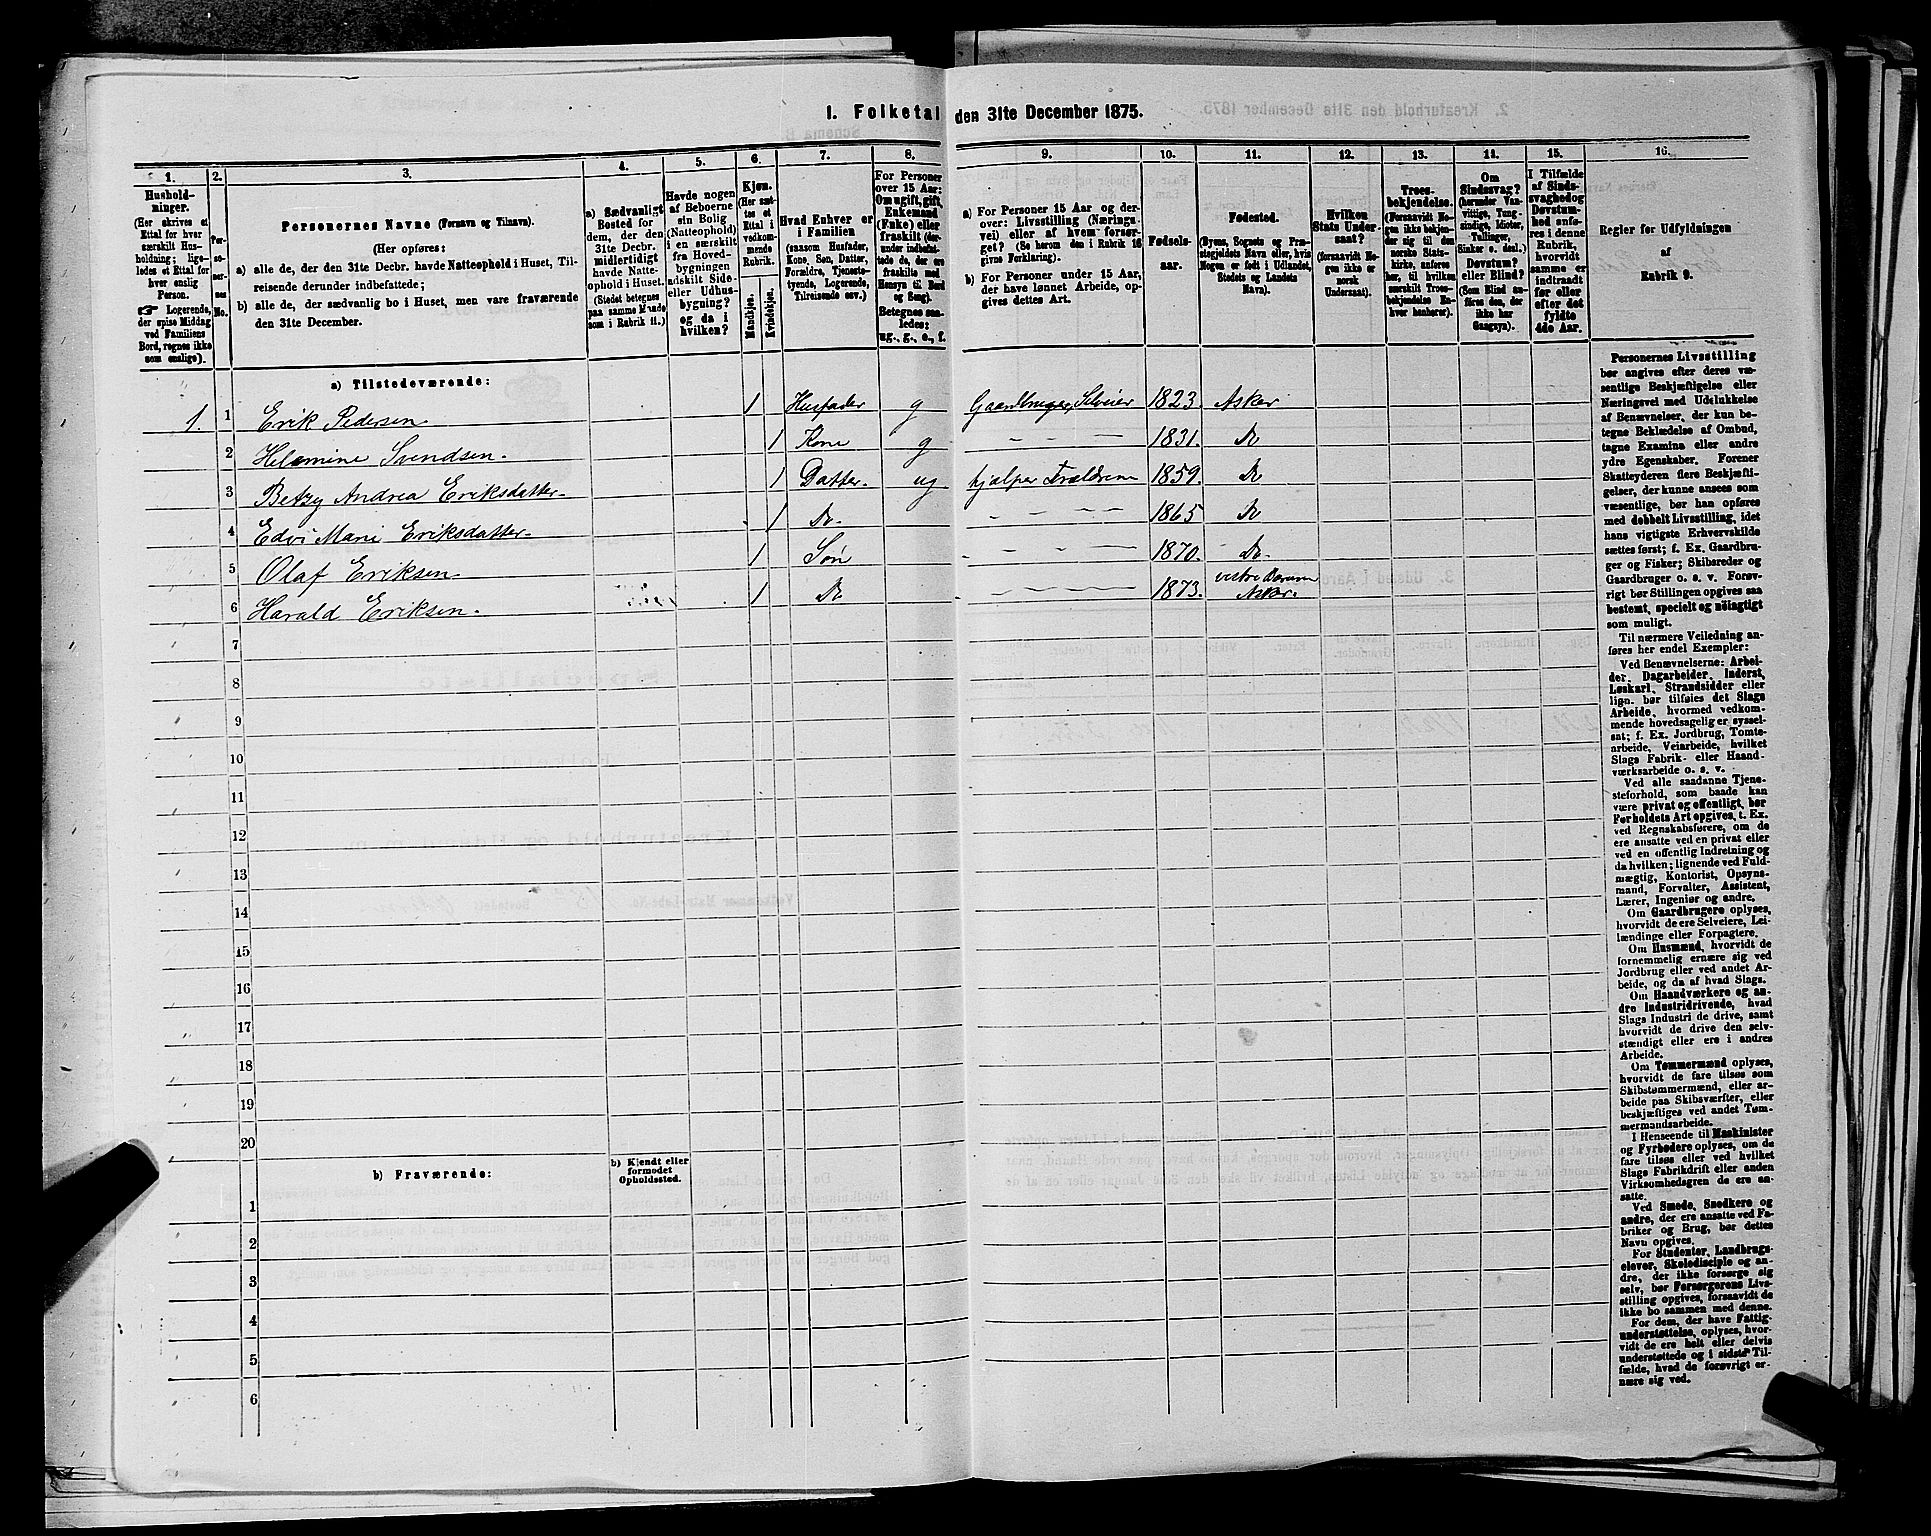 1. Folketal den 31te December 1875.
1. 2. 3. 4. 5. 6. 7. 8. 9. 10. 11. 12. 13. 14. 15. 16.
Hushold-
ninger.
(Her skrives et
Ettal for hver
særskilt Hus-
holdning; lige-
ledes et Ettal for
hver enslig
Person.
☞ Logerende,
der spise Middag
ved Familiens
Bord, regnes ikke
som enslige).
Per-
so-
ner-
nes
No.
Personernes Navne (Fornavn og Tilnavn).
(Her opføres:
a) alle de, der den 31te Decbr. havde Natteophold i Huset, Til-
reisende derunder indbefattede;
b) alle de, der sædvanlig bo i Huset, men vare fraværende
den 31te December.
a) Sædvanligt
Bosted for
dem, der den
31te Decbr.
midlertidigt
havde Natte-
ophold i Huset.
(Stedet betegnes
paa samme Maade
som i Rubrik 11.)
Havde nogen
af Beboerne
sin Bolig
(Natteophold)
i en særskilt
fra Hoved-
bygningen
adskilt Side-
eller Udhus-
bygning?
og da i
hvilken?
Kjøn.
(Her sæt-
tes et
Ettal i
vedkom-
mende
Rubrik.
Mandkjøn.
Kvindekjøn.
Hvad Enhver er
i Familien
(saasom Husfader,
Kone, Søn, Datter,
Forældre, Tjeneste-
tyende, Logerende,
Tilreisende osv.)
For Personer
over 15 Aar:
Om ugift, gift,
Enkemand
(Enke) eller
fraskilt (der-
under indbefat-
tede de, der ere
fraskilte med
Hensyn til Bord
og Seng).
Betegnes saa-
ledes:
ug., g., e., f.
a) For Personer 15 Aar og der-
over: Livsstilling (Nærings-
vei) eller af hvem forsør-
get? (Se herom den i Rubrik 16
givne Forklaring).
b) For Personer under 15 Aar,
der have lønnet Arbeide, op-
gives dettes Art.
Fødsels-
aar.
Fødested.
(Byens, Sognets og Præ-
stegjeldets Navn eller, hvis
Nogen er født i Udlandet,
Stedets og Landets
Navn).
Hvilken
Stats Under-
saat?
(forsaavidt No-
gen ikke er
norsk
Undersaat).
Troes-
bekjendelse.
(Forsaavidt No-
gen ikke bekjen-
der sig til den
norske Stats-
kirke, anføres
her, til hvilken
særskilt Troes-
bekjendelse En-
hver henhører).
Om
Sindssvag?
(herunder Van-
vittige, Tung-
sindige, Idioter,
Tullinger,
Sinker o. desl.).
Døvstum?
eller Blind?
(Som Blind an-
føres den, der
ikke har
Gangsyn).
I Tilfælde
af Sinds-
svaghed og
Døvstum-
hed anfø-
res i denne
Rubrik,
hvorvidt
samme er
indtraadt
før eller
efter det
fyldte
4de Aar.
Regler for Udfyldningen
af
Rubrik 9.
a) Tilstedeværende:
1. 1 Erik Pedersen 1 Husfader g Gaardbruger, Selveier 1823. Asker
2 Helemine Svendsen. 1 Kone g — — — 1831. Do
3 Betzy Andrea Eriksdatter 1 Datter. ug hjælper Forældrene 1859. Do
4 Edvi Marie Eriksdatter 1 Do. — — — 1865 Do
5 Olaf Eriksen 1 Søn — — — 1870. Do.
6 Harald Eriksen. 1 Do — — — 1873. Asker.
7
8
9
10
11
12
13
14
15
16
17
18
19
20
b) Fraværende:
b) Kjendt eller
formodet
Opholdssted.
1
2
3
4
5
6
Personernes Livsstilling
bør angives efter deres væ-
sentlige Beskjæftigelse eller
Næringsvei med Udelukkelse
af Benævnelser, der kun be-
tegne Beklædelse af Ombud,
tagne Examina eller andre
ydre Egenskaber. Forener
Skatteyderen flere Beskjæfti-
gelser, der kunne ansees som
væsentlige, bør han opføres
med dobbelt Livsstilling, idet
hans vigtigste Erhvervskilde
sættes først; f. Ex. Gaardbru-
ger og Fisker; Skibsreder og
Gaardbruger o. s. v. Forøv-
rigt bør Stillingen opgives saa
bestemt, specielt og nöiagtigt
som muligt.
Til nærmere Veiledning an-
føres her endel Exempler:
Ved Benævnelserne: Arbei-
der, Dagarbeider, Inderst,
Løskarl, Strandsidder eller
lign. bør tilføies det Slags
Arbeide, hvormed vedkom-
mende hovedsagelig er syssel-
sat; f. Ex. Jordbrug, Tomte-
arbeide, Veiarbeide, hvilket
Slags Fabrik- eller Haand-
værksarbeide o. s. v.
Ved alle saadanne Tjene-
steforhold, som baade kan
være privat og offentligt, bør
Forholdets Art opgives, t. Ex.
ved Regnskabsførere, om de
ere ansatte ved en privat eller
ved en offentlig Indretning og
da hvilken; lignende ved Fuld-
mægtig, Kontorist, Opsyns-
mand, Forvalter, Assistent,
Lærer, Ingeniør og andre.
Om Gaardbrugere oplyses,
hvorvidt de ere Selveiere, Lei-
lændinge eller Forpagtere.
Om Husmænd, hvorvidt de
fornemmelig ernære sig ved
Jordbrug eller ved andet Ar-
beide, og da af hvad Slags.
Om Haandværkere og an-
dre Industridrivende, hvad
Slags Industri de drive, samt
hvorvidt de drive den selv-
stændigt eller ere i andres
Arbeide.
Om Tømmermænd oplyses,
hvorvidt de fare tilsøs som
Skibstømmermænd, eller ar-
beide paa Skibsværfter, eller
beskjæftiges ved andet Tøm-
mermandsarbeide.
I Henseende til Maskinister
og Fyrbødere oplyses, om de
fare tilsøs eller ved hvilket
Slags Fabrikdrift eller anden
Virksomhedsgren de ere an-
satte.
Ved Smede, Snedkere og
andre, der ere ansatte ved Fa-
briker og Brug, bør dettes
Navn opgives.
For Studenter, Landbrugs-
elever, Skoledisciple og an-
dre, der ikke forsørge sig
selv, bør Forsørgerens Livs-
stilling opgives, forsaavidt de
ikke bo sammen med denne.
For dem, der have Fattig-
understøttelse, oplyses, hvor-
vidt de ere helt eller delvis
understøttede og i sidste Til-
fælde, hvad de forøvrigt er-
nære sig ved.